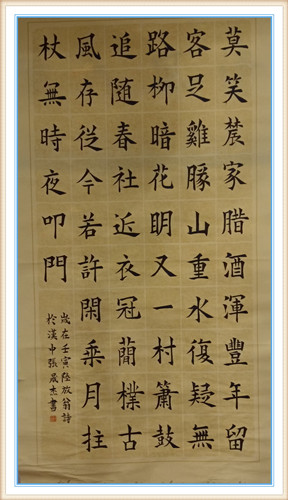 莫笑農家腊酒渾豐年留
客足雞豚山重水復疑無
路柳暗花明又一村簫鼓
追随春社近衣冠簡樸古
風存從今若許閑乘月拄
杖無時夜叩門
歲在壬寅陸放翁詩
於漢中張晟杰書